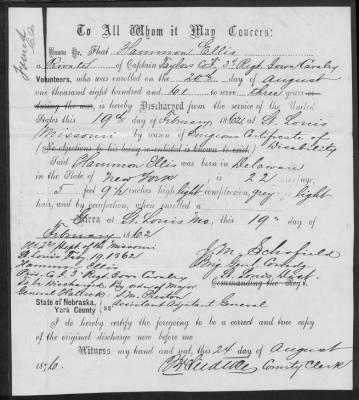 To All Whom it May Concern:
Know Ye, That Hammon Ellis
a Private of Captain Taylors Co F, 3d Regt. Iowa Cavalry
Volunteers, who was enrolled on the 20th day of August
one thousand eight hundred and 61 to serve three years or
during the war, is hereby Discharged from the service of the United
States this 19th day of February, 1862 at St. Louis
Missouri by reason of Surgeons Certificate of
Disability
(No objections to his being re-enlisted is known to exist)
Said Hammon Ellis was born in Delaware
in the State of New York is 22 age,
5 feet 9½ inches high light complexion, grey eyes light
hair, and by occupation, when enrolled a
Given at St. Louis Mo, this 19th day of
February 1862
Dept of the Missouri
St Louis Feby 19, 1862
Hammon Ellis
Co. F 3d Regt Iowa Cavalry
To be discharged. By order of Major
General Halleck
J. M. Schofield
Brig Genl Comdg
St Louis Dist
Commanding the Reg't.
Assistant Adjutant General
State of Nebraska,
York County ss
I do hereby certify the foregoing to be a correct and true copy
of the original discharge now before me
Witness my hand and seal, this 24 day of August
1876. County Clerk